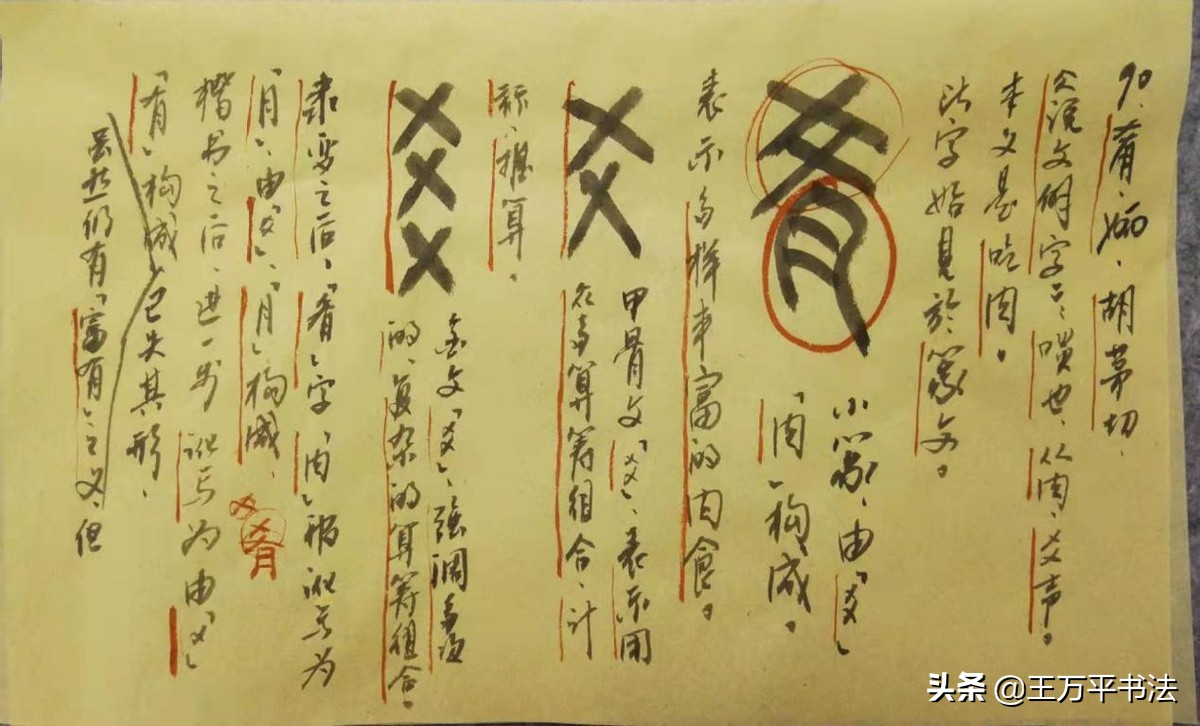 90、肴、yáo、胡茅切、
《说文解字》：啖也、从肉、爻声。
本义是吃肉。
此字始见於篆文。
肴
小篆、由「爻」
「肉」构成。
表示多样丰富的肉食。
爻
甲骨文「爻」、表示用
众多算筹组合、计
标、推算。
金文「爻」、强调多边
的、复杂的算筹组合。
隶变之后、「肴」字「肉」被讹写为
「月」、由「爻」、「月」构成、
肴
楷书之后、进一步讹写为由「㐅」
「有」构成、已失其形、
虽然仍有「富有」之义、但
头条 @王万平书法